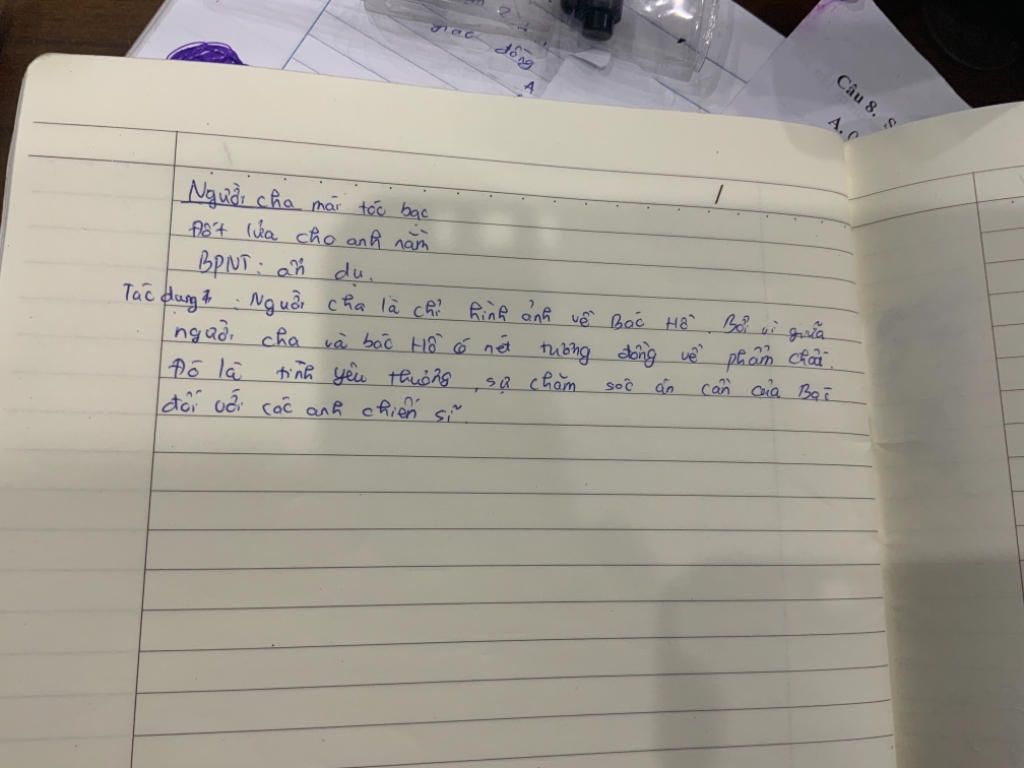 giác đồng
A
Câu 8. S
A. C
Người cha mái tóc bạc
Đốt lửa cho anh nằm
BPNT: ẩn dụ.
Tác dụng: Người cha là chỉ hình ảnh về Bác Hồ. Bởi vì giữa
người cha và bác Hồ có nét tương đồng về phẩm chất.
Đó là tình yêu thương, sự chăm sóc ân cần của Bác
đối với các anh chiến sĩ.